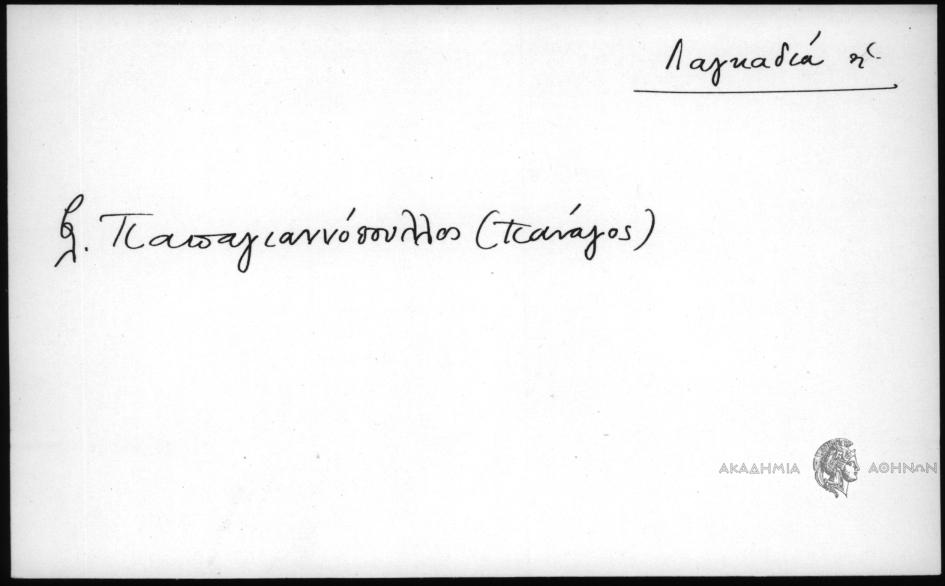 Λαγκαδιά ἡ.
βλ. Παπαγιαννόπουλλος (Πανάγος)
ΑΚΑΔΗΜΙΑ ΑΘΗΝΩΝ